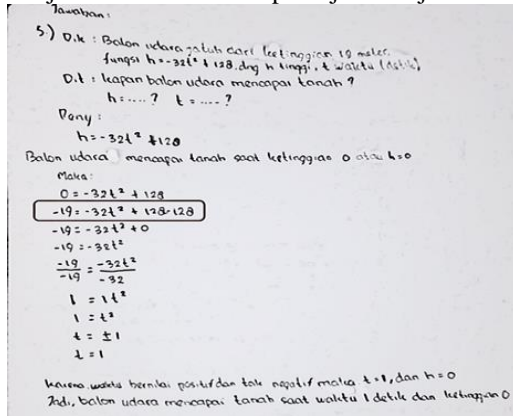 Jawaban:
5.) D.k : Balon udara jatuh dari ketinggian 19 meter.
fungsi h = -32t² + 128, dng h tinggi, t waktu (detik)
D.t : kapan balon udara mencapai tanah ?
h = .... ? t = .... ?
Peny :
h = -32t² + 128
Balon udara mencapai tanah saat ketinggian 0 atau h = 0
Maka :
0 = -32t² + 128
-19 = -32t² + 128-128
-19 = -32t² + 0
-19 = -32t²
-19/-19 = -32t²/-32
1 = 1t²
1 = t²
t = ±1
t = 1
karena waktu bernilai positif dan tak negatif maka t = 1, dan h = 0
Jadi, balon udara mencapai tanah saat waktu 1 detik dan ketinggian 0